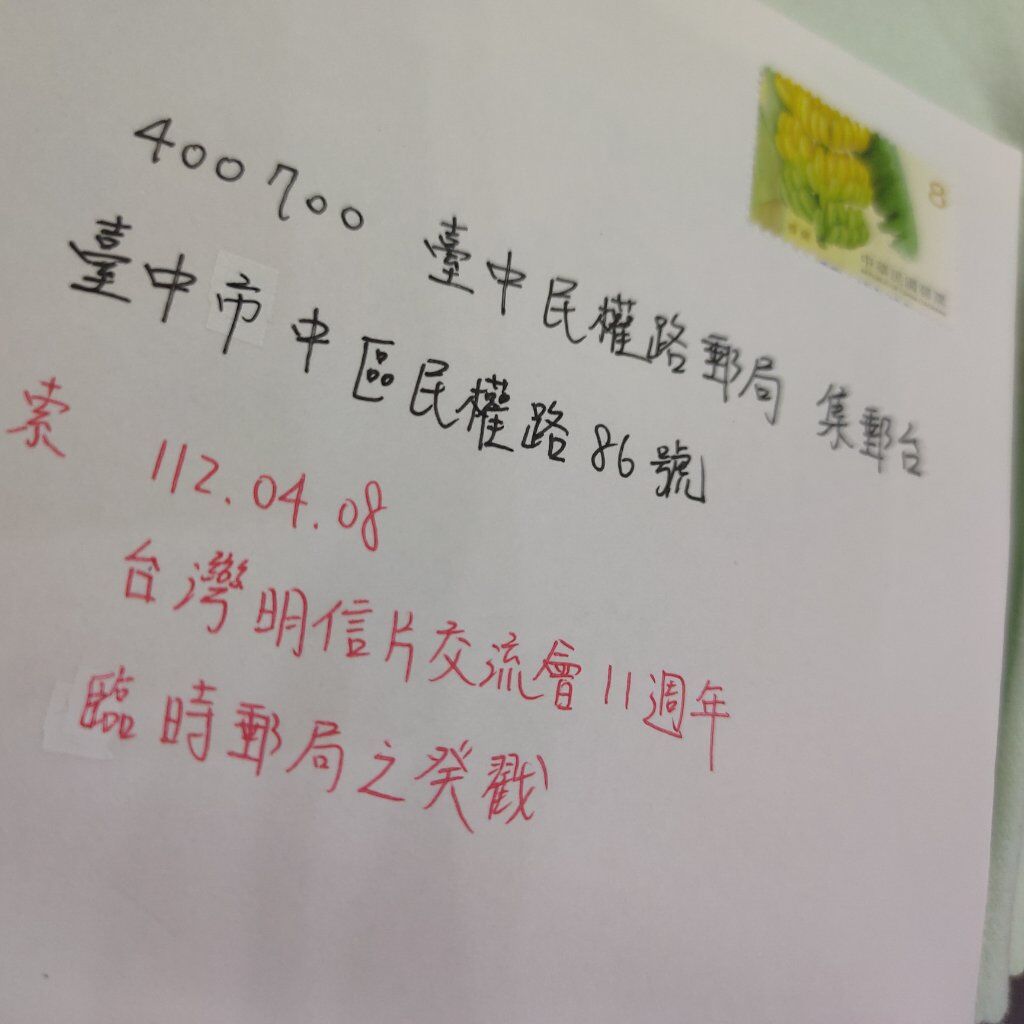 8
中華民國郵票
400700 臺中民權路郵局 集郵台
臺中市中區民權路86號
索 112.04.08
台灣明信片交流會11週年
臨時郵局之癸戳